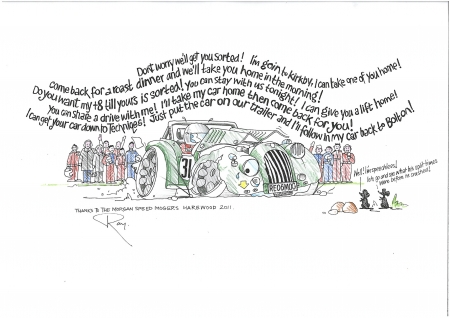 Don't worry we'll get you sorted! I'm goin to Kirkby, I can take one of you home!
come back for a roast dinner and we'll take you home in the morning!
Do you want my +8 till yours is sorted! You can stay with us tonight! I can give you a lift home!
You can share a drive with me! I'll take my car home then come back for you!
I can get your car down to Techniques! Just put the car on our trailer and I'll follow in my car back to Bolton!
31
REDOMOG
Well! I'm speechless!
lets go and see what his split times
were before he crashed!
THANKS TO THE MORGAN SPEED MOGGERS HAREWOOD 2011.
Ray.